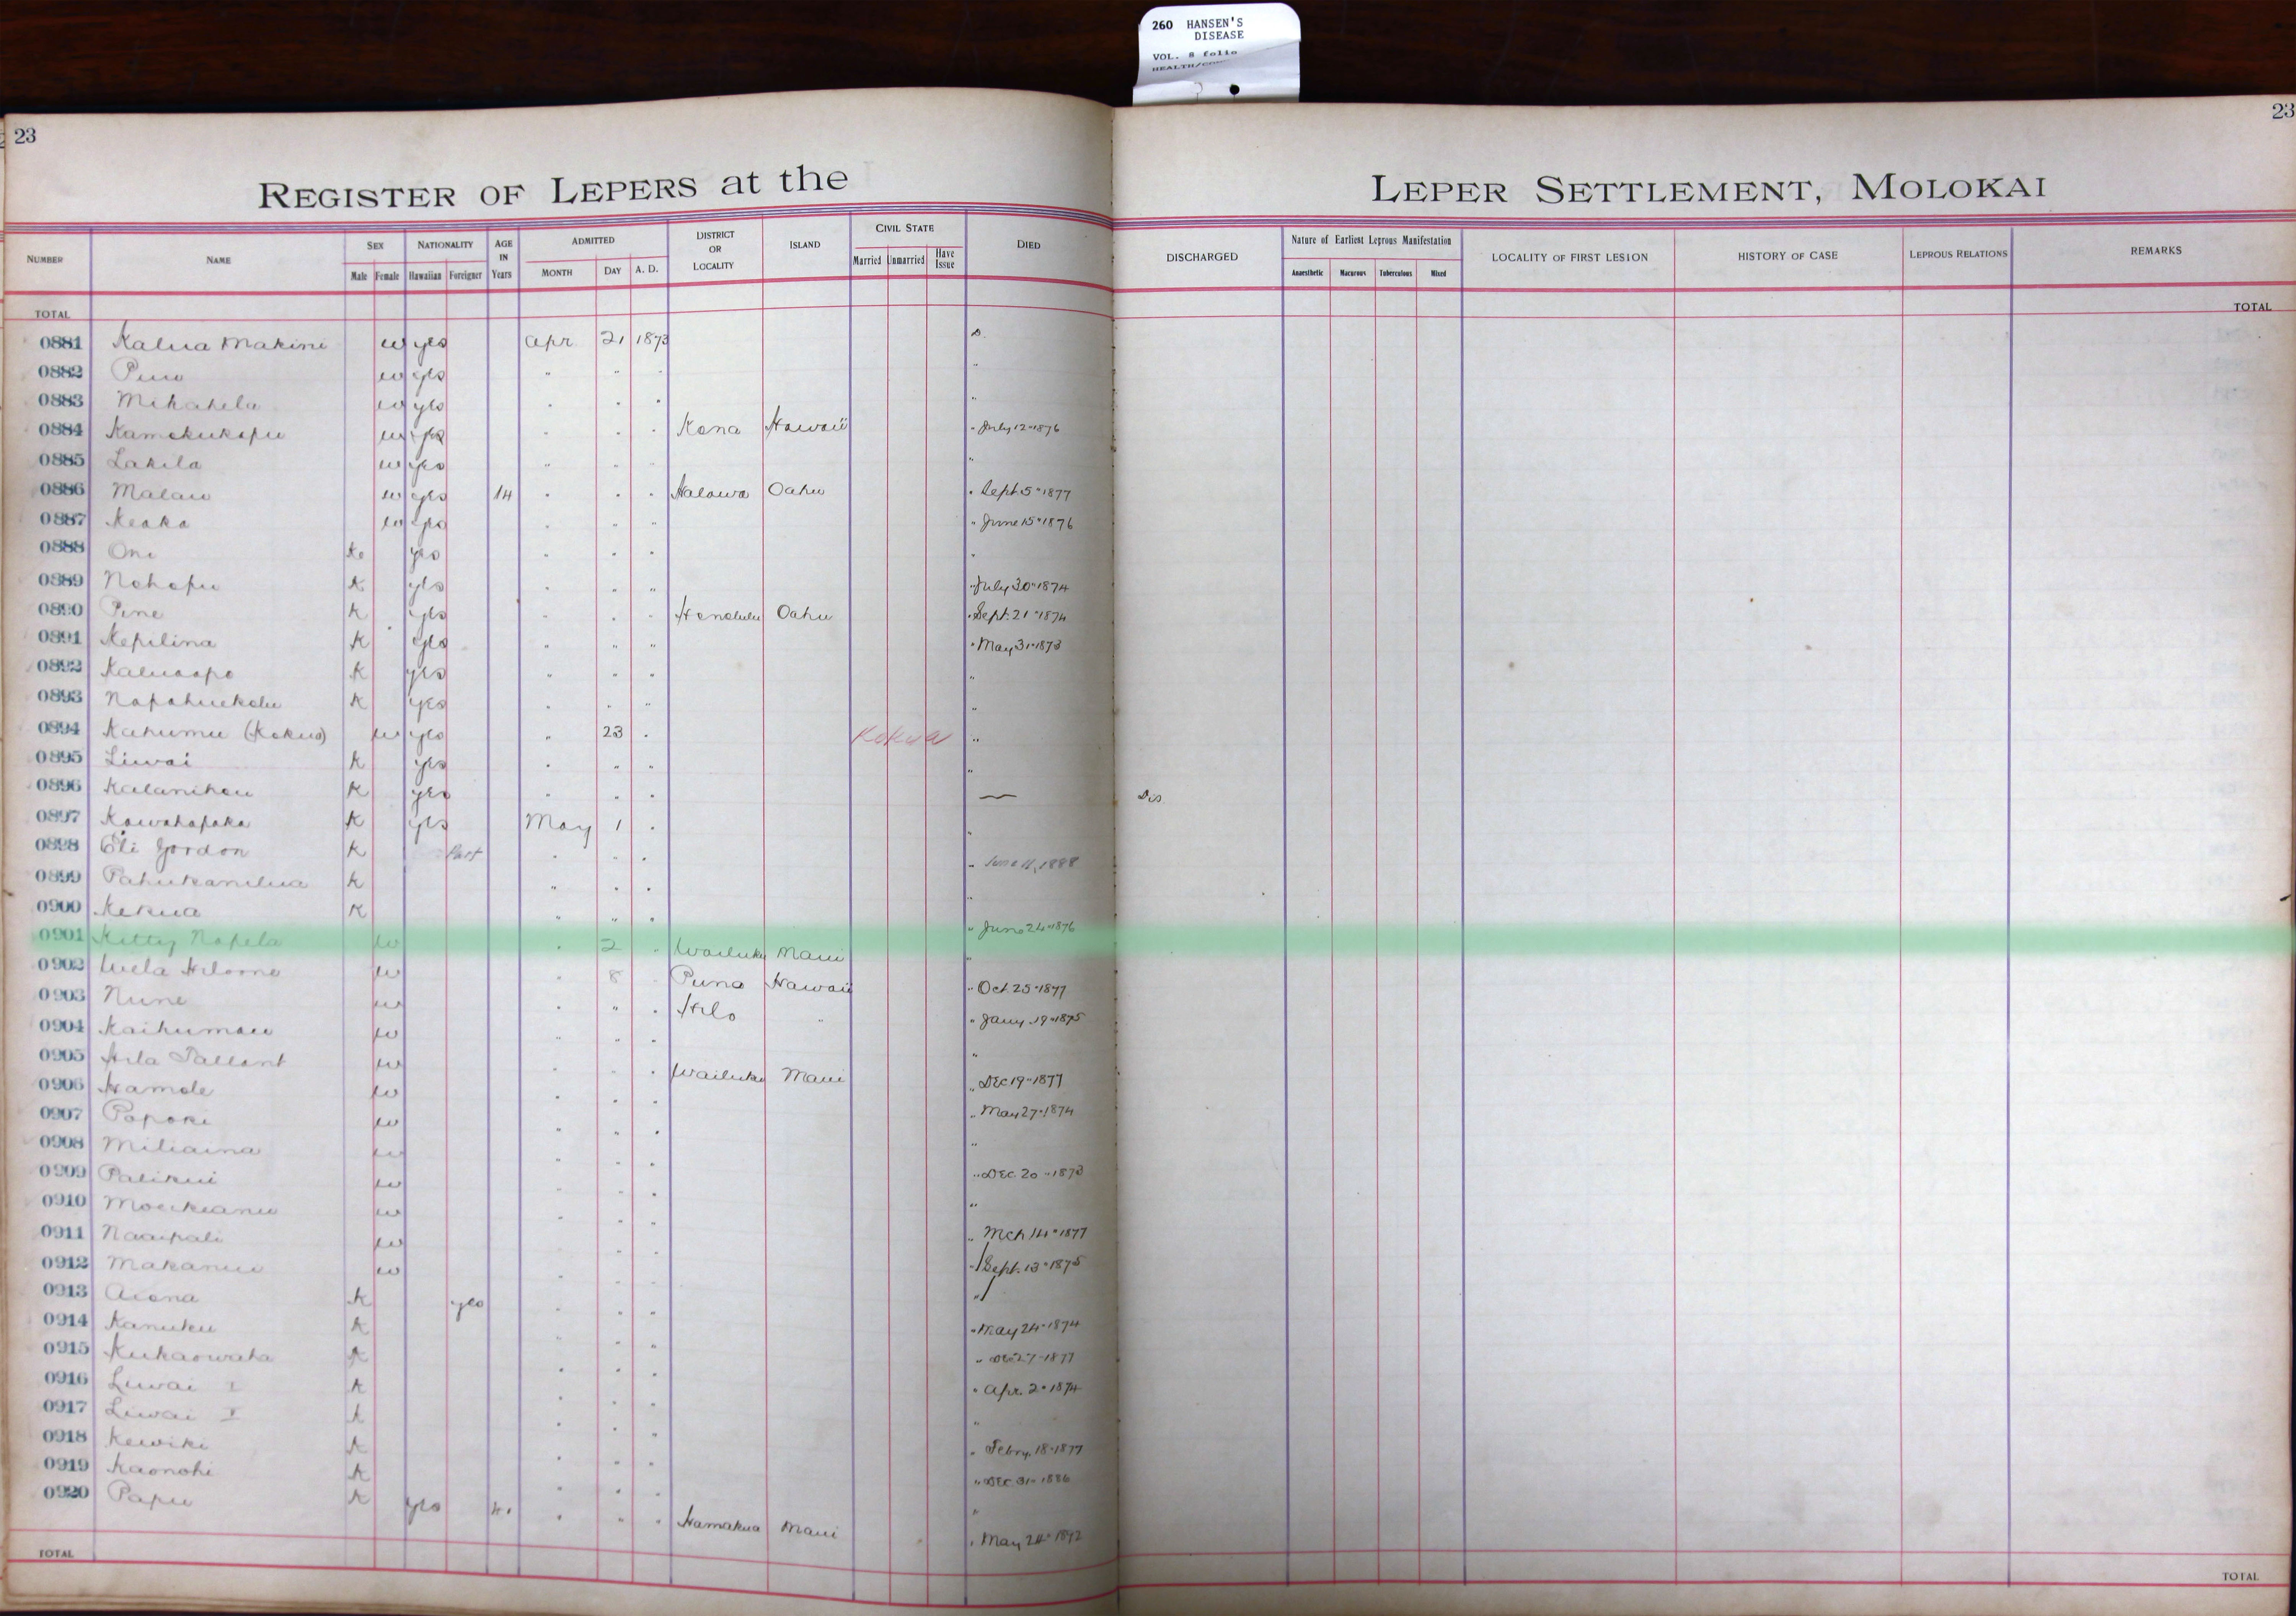 260 HANSEN'S
DISEASE
VOL. 8 folio
23
23
REGISTER OF LEPERS at the LEPER SETTLEMENT, MOLOKAI
NUMBER NAME SEX Male Female NATIONALITY Hawaiian Foreigner AGE IN Years ADMITTED MONTH DAY A. D. DISTRICT OR LOCALITY ISLAND CIVIL STATE Married Unmarried Have Issue DIED DISCHARGED Nature of Earliest Leprous Manifestation Anaesthetic Macurous Tuberculous Mixed LOCALITY OF FIRST LESION HISTORY OF CASE LEPROUS RELATIONS REMARKS
TOTAL TOTAL
0881 Kalua Makini w yes Apr 21 1873 D.
0882 w yes " " " "
0883 Mikahela w yes " " " "
0884 Kamekukapu w yes " " " Kona Hawaii " July 12 " 1876
0885 Lakila w yes " " " "
0886 Malau w yes 14 " " " Halawa Oahu " Sept. 5 " 1877
0887 Keaka w yes " " " " June 15 " 1876
0888 Oni K yes " " " "
0889 Nohopu K yes " " " " July 30 " 1874
0890 Pine K yes " " " Honolulu Oahu " Sept. 21 " 1874
0891 Kepilina K yes " " " " May 31 " 1873
0892 Kaluaapo K yes " " " "
0893 Napahuekolu K yes " " " "
0894 Kahumu (Kokua) w yes " 23 " Kokua "
0895 Liwai K yes " " " "
0896 Kalanihou K yes " " " — Dis
0897 Kawahapaka K yes May 1 " "
0898 Eli Gordon K Part " " " " June 11, 1888
0899 Pahukanilua K " " " "
0900 Kekua K " " " " June 24 " 1876
0901 Kitty Napela w " 2 " Wailuku Maui "
0902 w " 8 " Puna Hawaii " Oct. 25 " 1877
0903 Nune w " " " Hilo " " Jany. 19 " 1875
0904 Kaihumau w " " " "
0905 Hila Tallant w " " " Wailuku Maui " Dec 19 " 1877
0906 Hamole w " " " " May 27 " 1874
0907 Papoki w " " " "
0908 Miliaina w " " " " Dec. 20 " 1873
0909 Palikui w " " " "
0910 w " " " " Mch 14 " 1877
0911 Naaipali w " " " " Sept. 13 " 1875
0912 Makanui w " " " "
0913 Aiona K yes " " " " May 24 " 1874
0914 Kanuku K " " " " Dec 27 " 1877
0915 Kukaowaha K " " " " Apr. 2 " 1874
0916 Liwai I K " " " "
0917 Liwai K " " " " Febry. 18 " 1877
0918 Kewiki K " " " " Dec 31 " 1886
0919 Kaonohi K " " " "
0920 Papu K yes " " " Hamakua Maui " May 24 " 1892
TOTAL TOTAL